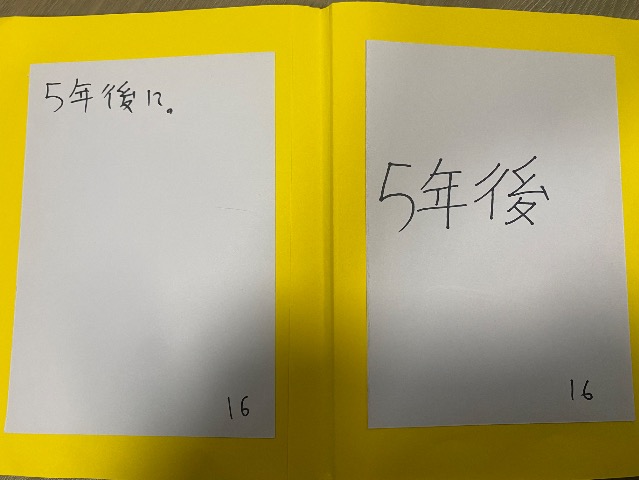 5年後に。
16
5年後
16